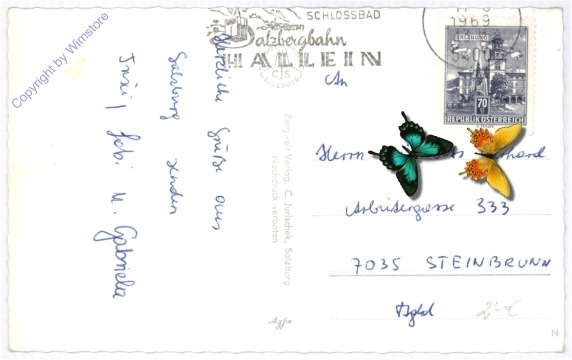 Copyright by Wimstore
Herzliche Grüße aus
Salzburg senden
Gabi u. Gabriela
SCHLOSSBAD
Salzbergbahn
HALLEIN
1969
SALZBURG
70
REPUBLIK ÖSTERREICH
Bergwelt Verlag, C. Jurischek, Salzburg
Nachdruck verboten
An
Herrn
333
7035 STEINBRUNN
Bgld
2,-€
N